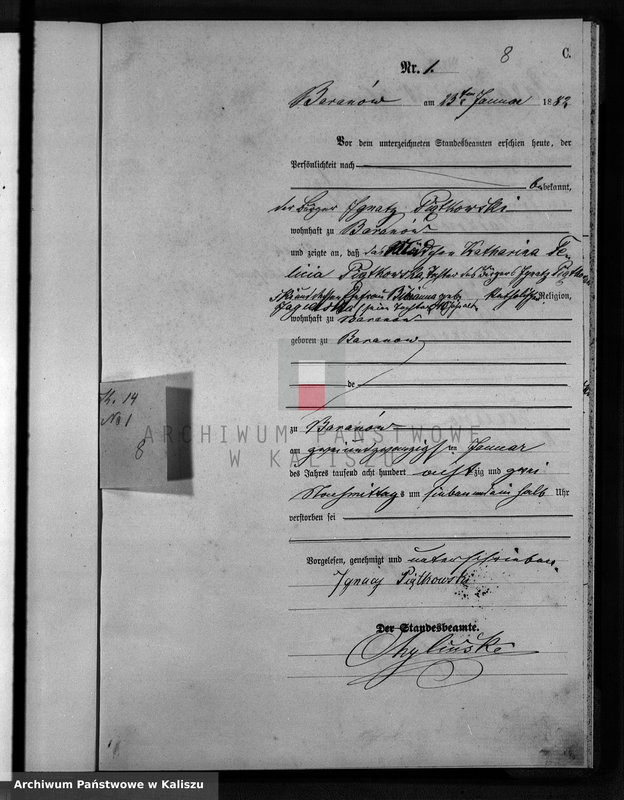 8
C.
Nr. 1.
Baranów am 23ten Januar 1882
Vor dem unterzeichneten Standesbeamten erschien heute, der
Persönlichkeit nach
bekannt,
der Bürger Ignatz Piątkowski
wohnhaft zu Baranów
und zeigte an, daß das Mädchen Katharina Fe-
licia Piątkowska, Tochter des Bürgers Ignatz Piątkow-
ski und dessen Ehefrau Bibianna geb. katholischer Religion,
wohnhaft zu Baranów
geboren zu Baranow
de
zu Baranów
am zweiundzwanzigsten Januar
des Jahres tausend acht hundert achtzig und zwei
Nachmittags um sieben und ein halb Uhr
verstorben sei
Vorgelesen, genehmigt und unterschrieben.
Ignacy Piątkowski
Der Standesbeamte.
K. 14
No 1
8
ARCHIWUM PAŃSTWOWE
W KALISZU
Archiwum Państwowe w Kaliszu